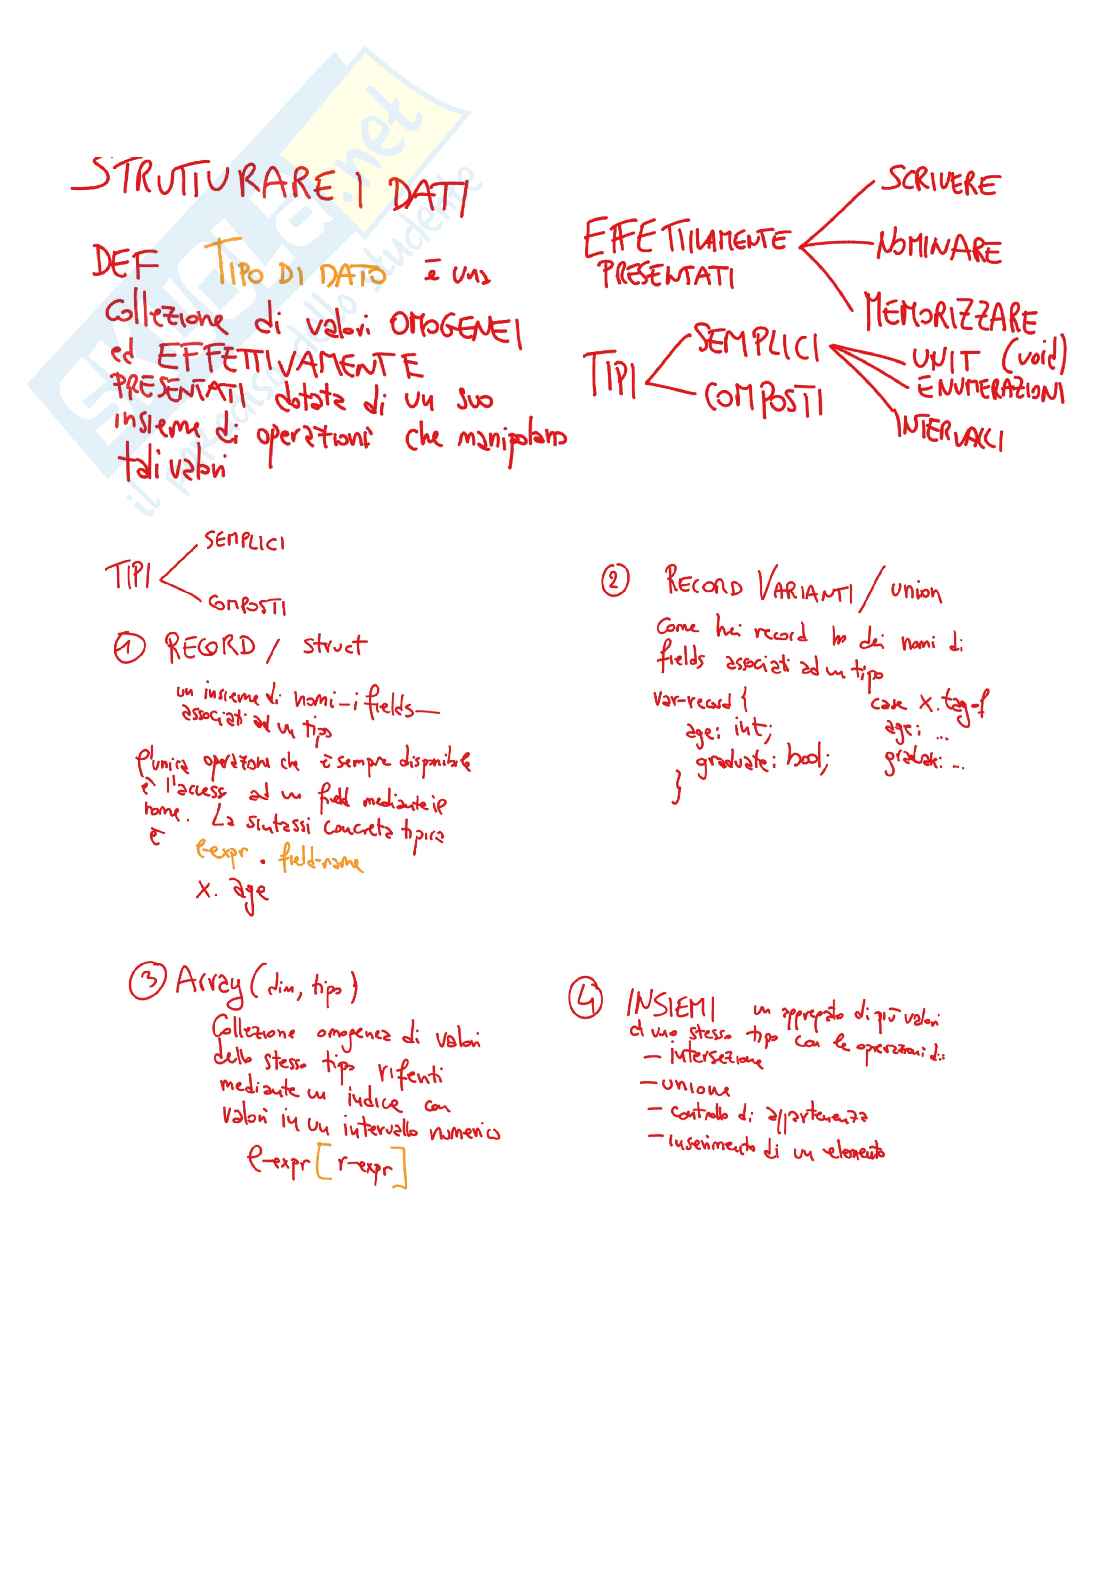 STRUTTURARE I DATI
DEF TIPO DI DATO è una
collezione di valori OMOGENEI
ed EFFETTIVAMENTE
PRESENTATI dotata di un suo
insieme di operazioni che manipolano
tali valori
EFFETTIVAMENTE
PRESENTATI
SCRIVERE
NOMINARE
MEMORIZZARE
TIPI
SEMPLICI
COMPOSTI
UNIT (void)
ENUMERAZIONI
INTERVALLI
TIPI
SEMPLICI
COMPOSTI
1 RECORD / struct
un insieme di nomi - i fields -
associati ad un tipo
l'unica operazione che è sempre disponibile
è l'accesso ad un field mediante il
nome. La sintassi concreta tipica
è
l-expr . field-name
x. age
2 RECORD VARIANTI / union
Come nei record ho dei nomi di
fields associati ad un tipo
var-record {
age: int;
graduate: bool;
}
case x.tag-f
age: ...
3 Array (dim, tipo)
Collezione omogenea di valori
dello stesso tipo riferiti
mediante un indice con
valori in un intervallo numerico
l-expr [r-expr]
4 INSIEMI un aggregato di più valori
di uno stesso tipo con le operazioni di:
- intersezione
- unione
- controllo di appartenenza
- inserimento di un elemento
SKUOLA.net
il paradiso dello studente